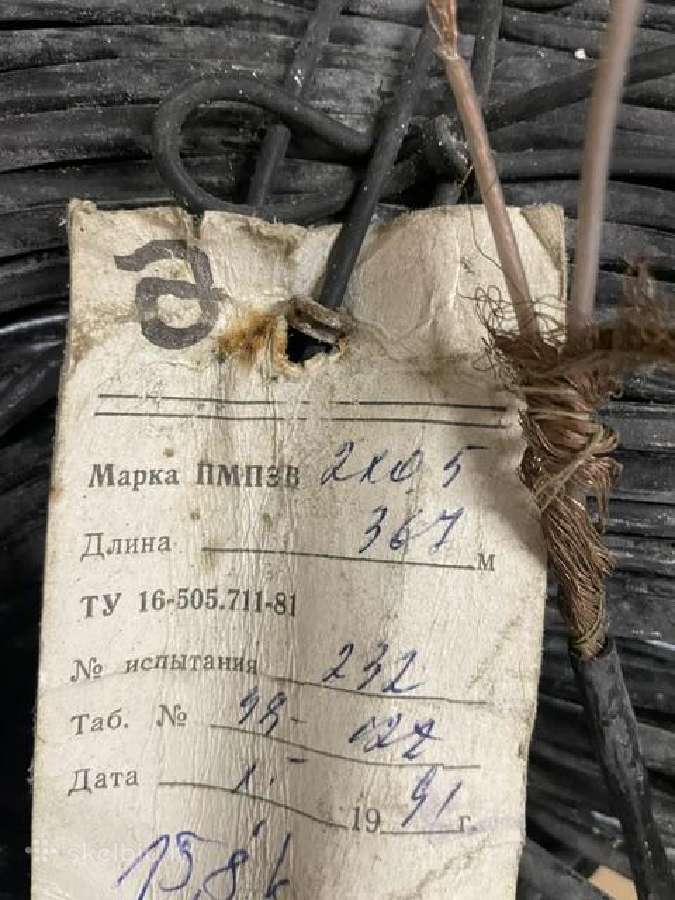 Марка ПМПЗВ 2х0 5
Длина 367 м
ТУ 16-505.711-81
№ испытания 232
Таб. № 
Дата 1.- 1991 г.
15,8